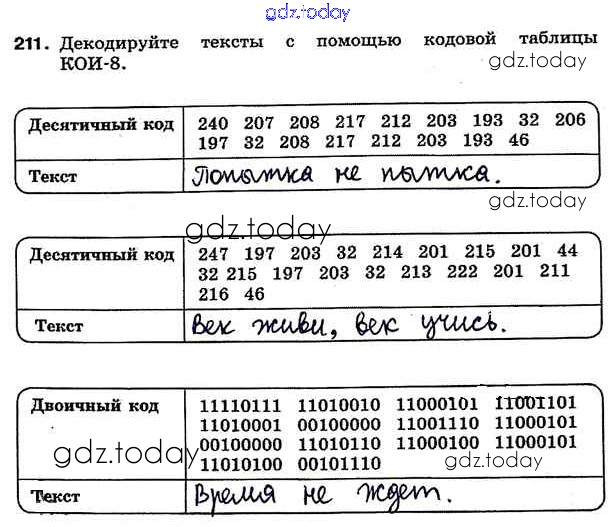 gdz.today
211. Декодируйте тексты с помощью кодовой таблицы
КОИ-8.
gdz.today
Десятичный код 240 207 208 217 212 203 193 32 206
197 32 208 217 212 203 193 46
Текст Попытка не пытка.
gdz.today
gdz.today
Десятичный код 247 197 203 32 214 201 215 201 44
32 215 197 203 32 213 222 201 211
216 46
Текст Век живи, век учись.
Двоичный код 11110111 11010010 11000101 11001101
11010001 00100000 11001110 11000101
00100000 11010110 11000100 11000101
gdz.today
gdz.today
11010100 00101110
Текст Время не ждет.